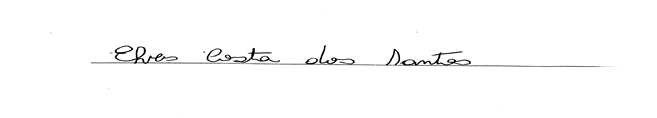 Elves Costa dos Santos